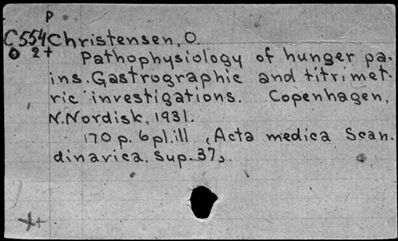 P
C554 Christensen, O.
O 2+ Pathophysiology of hunger pa-
ins. Gastrographic and titrimet-
ric investigations. Copenhagen,
N. Nordisk, 1931.
170 p. 6 pl. ill (Acta medica Scan-
dinavica. Sup. 37).